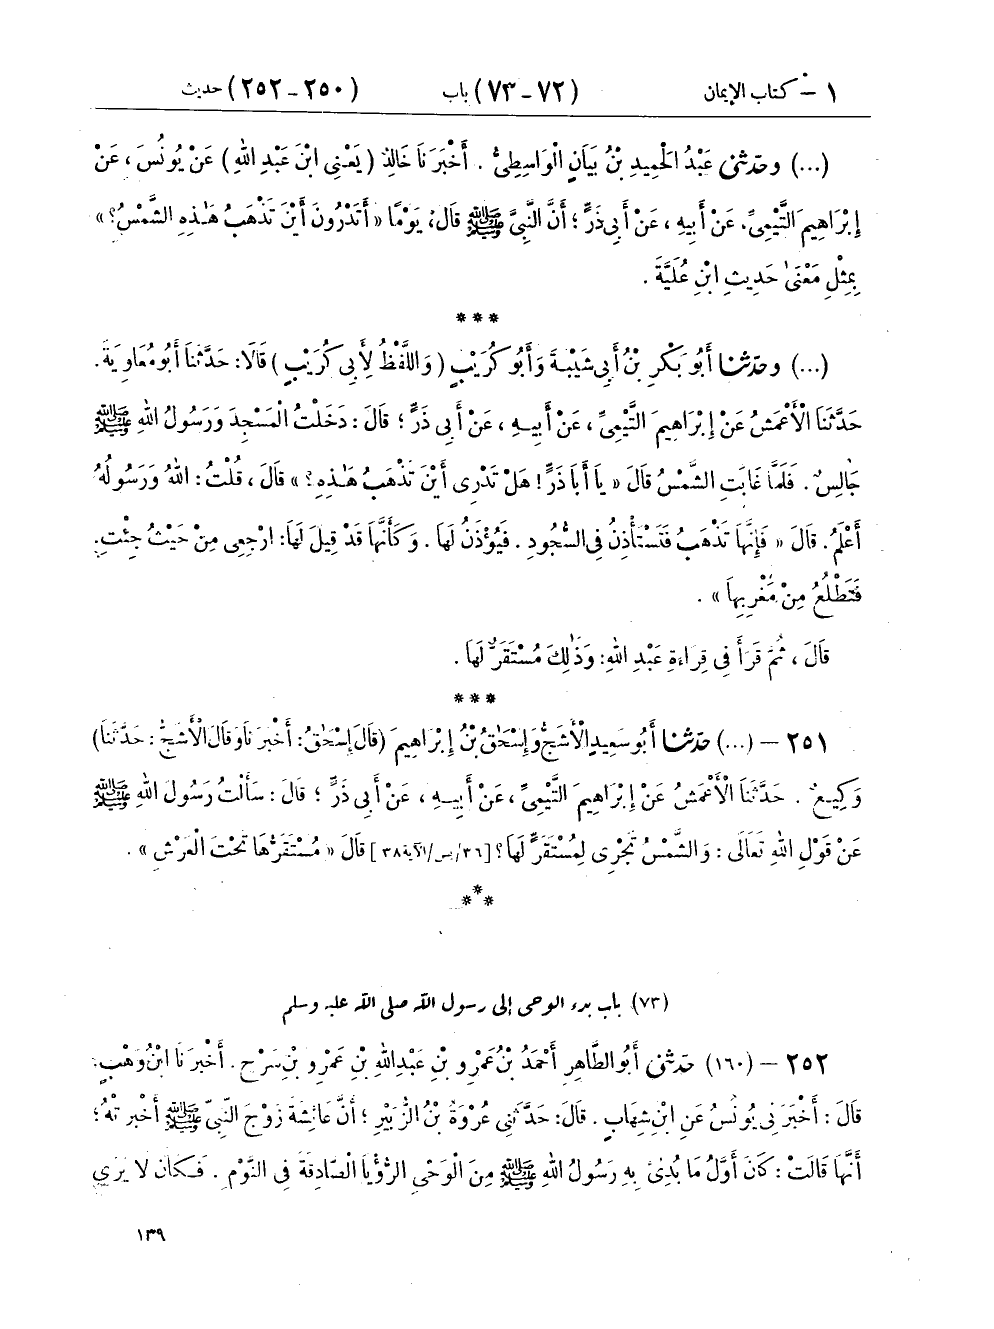 ١ – كتاب الإيمان (٧٢ – ٧٣) باب (٢٥٠ – ٢٥٢) حديث
(...) وحَدَّثَنِي عَبْدُ الْحَمِيدِ بْنُ بَيَانٍ الْوَاسِطِيُّ . أَخْبَرَنَا خَالِدٌ (يَعْنِي ابْنَ عَبْدِ اللهِ) عَنْ يُونُسَ ، عَنْ
إِبْرَاهِيمَ التَّيْمِيِّ، عَنْ أَبِيهِ ، عَنْ أَبِي ذَرٍّ ؛ أَنَّ النَّبِيَّ ﷺ قَالَ، يَوْمًا « أَتَدْرُونَ أَيْنَ تَذْهَبُ هَٰذِهِ الشَّمْسُ؟ »
بِمِثْلِ مَعْنَىٰ حَدِيثِ ابْنِ عُلَيَّةَ .
* * *
(...) وحَدَّثَنَا أَبُو بَكْرِ بْنُ أَبِي شَيْبَةَ وَأَبُو كُرَيْبٍ (وَاللَّفْظُ لِأَبِي كُرَيْبٍ) قَالَا: حَدَّثَنَا أَبُو مُعَاوِيَةَ.
حَدَّثَنَا الْأَعْمَشُ عَنْ إِبْرَاهِيمَ التَّيْمِيِّ ، عَنْ أَبِيهِ ، عَنْ أَبِي ذَرٍّ ؛ قَالَ : دَخَلْتُ الْمَسْجِدَ وَرَسُولُ اللهِ ﷺ
جَالِسٌ . فَلَمَّا غَابَتِ الشَّمْسُ قَالَ « يَا أَبَا ذَرٍّ! هَلْ تَدْرِي أَيْنَ تَذْهَبُ هَٰذِهِ ؟ » قَالَ ، قُلْتُ : اللهُ وَرَسُولُهُ
أَعْلَمُ. قَالَ « فَإِنَّهَا تَذْهَبُ فَتَسْتَأْذِنُ فِي السُّجُودِ . فَيُؤْذَنُ لَهَا . وَكَأَنَّهَا قَدْ قِيلَ لَهَا: ارْجِعِي مِنْ حَيْثُ جِئْتِ.
فَتَطْلُعُ مِنْ مَغْرِبِهَا » .
قَالَ ، ثُمَّ قَرَأَ فِي قِرَاءَةِ عَبْدِ اللهِ: وَذَٰلِكَ مُسْتَقَرٌّ لَهَا .
* * *
٢٥١ – (...) حَدَّثَنَا أَبُو سَعِيدٍ الْأَشَجُّ وَإِسْحَٰقُ بْنُ إِبْرَاهِيمَ (قَالَ إِسْحَٰقُ: أَخْبَرَنَا وَقَالَ الْأَشَجُّ : حَدَّثَنَا)
وَكِيعٌ . حَدَّثَنَا الْأَعْمَشُ عَنْ إِبْرَاهِيمَ التَّيْمِيِّ ، عَنْ أَبِيهِ ، عَنْ أَبِي ذَرٍّ ؛ قَالَ : سَأَلْتُ رَسُولَ اللهِ ﷺ
عَنْ قَوْلِ اللهِ تَعَالَى : وَالشَّمْسُ تَجْرِي لِمُسْتَقَرٍّ لَهَا؟ [٣٦/يس/الآية ٣٨] قَالَ « مُسْتَقَرُّهَا تَحْتَ الْعَرْشِ » .
* * *
(٧٣) باب بدء الوحي إلى رسول الله صلى الله عليه وسلم
٢٥٢ – (١٦٠) حَدَّثَنِي أَبُو الطَّاهِرِ أَحْمَدُ بْنُ عَمْرِو بْنِ عَبْدِ اللهِ بْنِ عَمْرِو بْنِ سَرْحٍ . أَخْبَرَنَا ابْنُ وَهْبٍ.
قَالَ : أَخْبَرَنِي يُونُسُ عَنِ ابْنِ شِهَابٍ . قَالَ: حَدَّثَنِي عُرْوَةُ بْنُ الزُّبَيْرِ ؛ أَنَّ عَائِشَةَ زَوْجَ النَّبِيِّ ﷺ أَخْبَرَتْهُ ؛
أَنَّهَا قَالَتْ : كَانَ أَوَّلُ مَا بُدِئَ بِهِ رَسُولُ اللهِ ﷺ مِنَ الْوَحْيِ الرُّؤْيَا الصَّادِقَةَ فِي النَّوْمِ . فَكَانَ لَا يَرَى
١٣٩